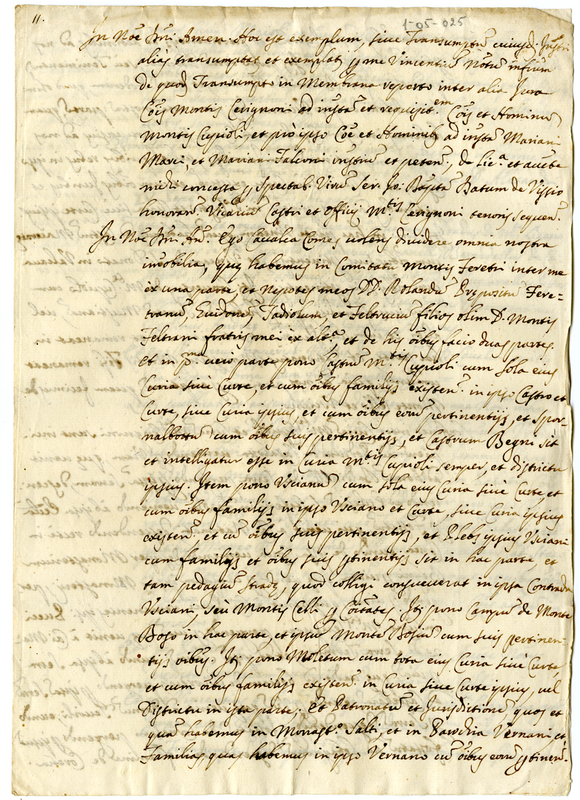 11.
1-05-025
In Noē Dni Amen. Hoc est exemplum, sive Transumptū cuiusd. Instrti
alias transumptat et exemplat p me Vincentiū Notm infrm
de quod. Transumpto in Membrana reperto inter alia Jura
Cois Montis Cerignoni ad instā et requisit.em Cois et Hominū
Montis Cupioli, et pro ipso Coe et Hominibȝ ad instā Mariani
Marci, et Mariani Falconi instān et peten, de lic.a et aucte
mihi concessa p Spectab. Virum Ser. Jo: Baptm Batum de Vissio
honoran. Vicariū Castri et Officij M.tis Cerignoni tenoris sequen.
In Noē Dni Am. Ego Cavalca Come, volens dividere omnia nostra
imobilia, quę habemus in Comitatu Montis Feretri inter me
ex una parte, et Nepotes meos DD. Rolandū Prepositū Fere-
tranū, Guidonem, Tadiolum, et Feltruciū filios olim D. Montis
Feltrani fratris mei ex alt.a, et de his oībus facio duas partes.
Et in p.m vero parte pono Castrū M.tis Cupioli cum sola eius
Curia sive Curte, et cum oībus familijs existen. in ipso Castro et
Curte, sive Curia ipsius, et cum oībus eorū pertinentijs, et
cum oībus suis pertinentijs, et Castrum Begni sit
et intelligatur esse in Curia M.tis Cupioli semper, et districtu
ipsius. Item pono Uscianū cum sola eius Curia sive Curte et
cum oībus familijs in ipso Usciano et Curte, sive Curia ipsius
existen, et cū oībus suis pertinentijs, et Plebs ipsius Usciani
cum familijs et oībus suis ptinentijs sit in hac parte, et
tam pedagiū stradę, quod colligi consueverat in ipsa Contrada
Usciani, seu Montis Celli p Coītates. Itȝ pono Campū de Monte
Boso in hac parte, et ipsū Montē Bosiū cum suis pertinen-
tijs oībus. Itȝ pono Moletum cum tota eius Curia sive Curte
et cum oībus familijs existen in Curia sive Curte ipsius, vel
Districtu in ista parte. Et Patronatū et Jurisdictionē quos et
quā habemus in Monast.o Salti, et in Vernani et
Familias quas habemus in ipso Vernano cū oībus eorū ptinen.